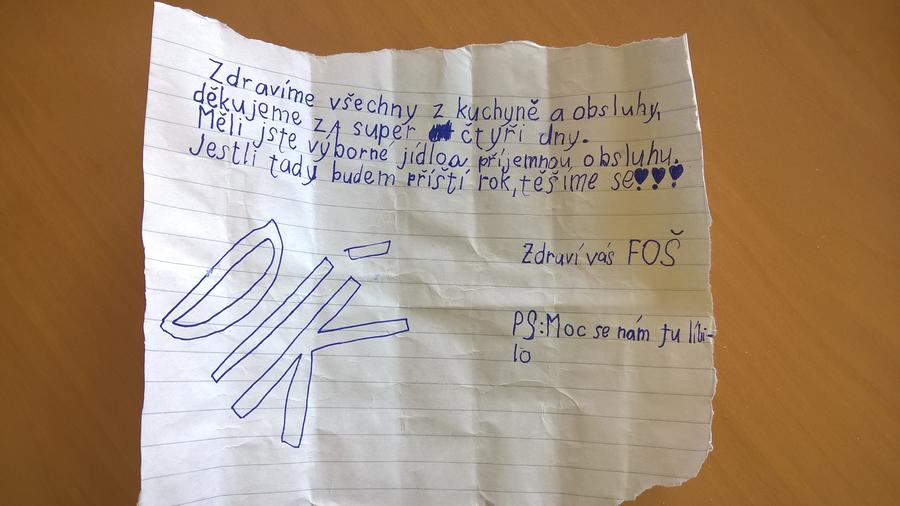 Zdravíme všechny z kuchyně a obsluhy,
děkujeme za super čtyři dny.
Měli jste výborné jídlo a příjemnou obsluhu.
Jestli tady budem příští rok, těšíme se♥♥♥
Zdraví vás FOŠ
DÍK
PS: Moc se nám tu líbi-
lo